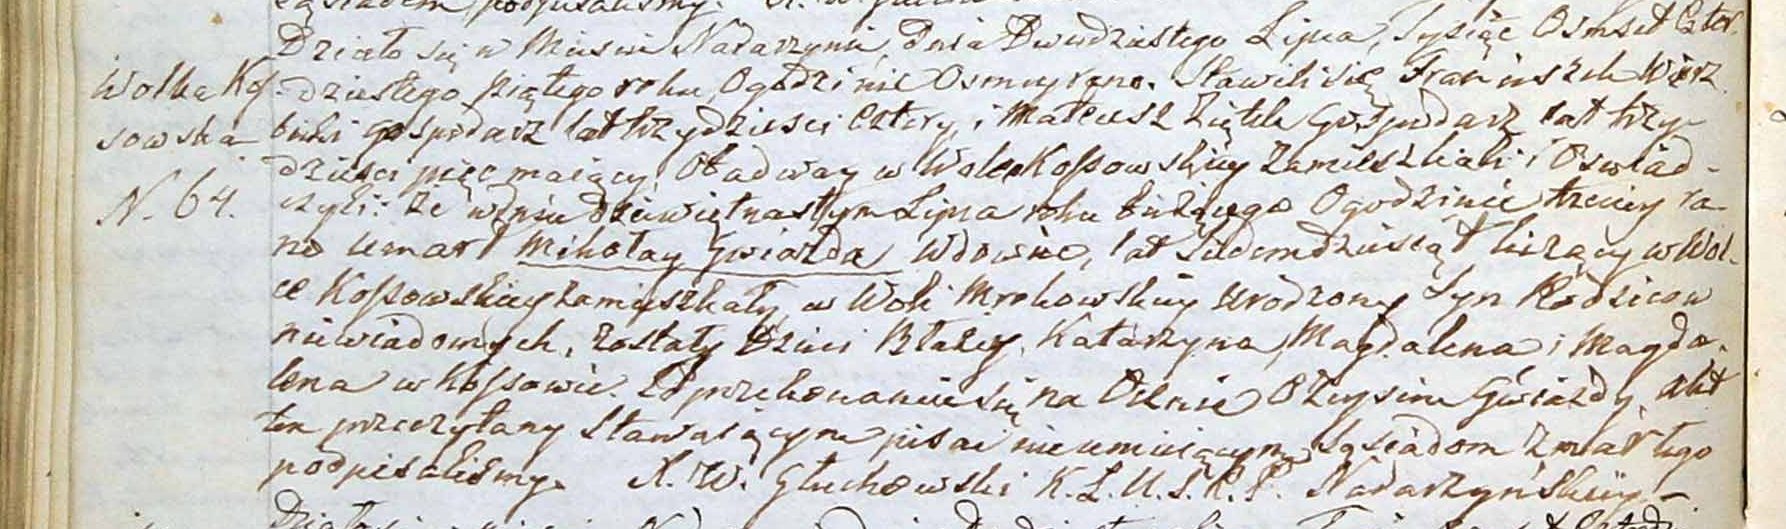 podpisaliśmy.
Działo się w Mieście Nadarzynie, Dnia Dwudziestego Lipca, Tysiąc Osmset Czter-
Wolka Kos- dziestego piątego roku, Ogodzinie Osmey rano. Stawili się Franciszek Wierz
sowska bicki gospodarz lat trzydzieści cztery, i Mateusz Ziętek Gospodarz lat trzy-
dzieści pięć maiący, Obadway w Wolce Kossowskiey zamieszkali i Oswiad-
N. 64. czyli: że w dniu dziewiętnastym Lipca roku bieżącego Ogodzinie trzeciey ra-
no umarł Mikołay Gwiazda Wdowiec, lat siedemdziesiąt liczący w Wol-
ce Kossowskiey zamieszkały, w Woli Mrokowskiey urodzony Syn Rodzicow
niewiadomych, zostały Dzieci Błażey, Katarzyna, Magdalena i Magda-
lena w Kossowie. Po przekonaniu się na Ocznie O Zeyściu Gwiazdy, akt
ten przeczytany Stawaiącym pisać nieumieiącym, Sąsiadom zmarłego
podpisaliśmy. X. W. Głuchowski K. P. Nadarzyńskiey -